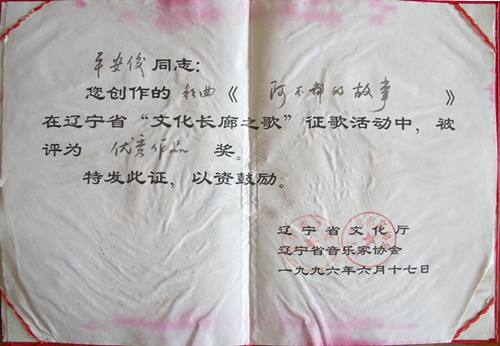 安俊 同志：
您创作的 歌曲《 阿不都的故事 》
在辽宁省“文化长廊之歌”征歌活动中，被
评为 优秀作品 奖。
特发此证，以资鼓励。
辽宁省文化厅
辽宁省音乐家协会
一九九六年六月十七日